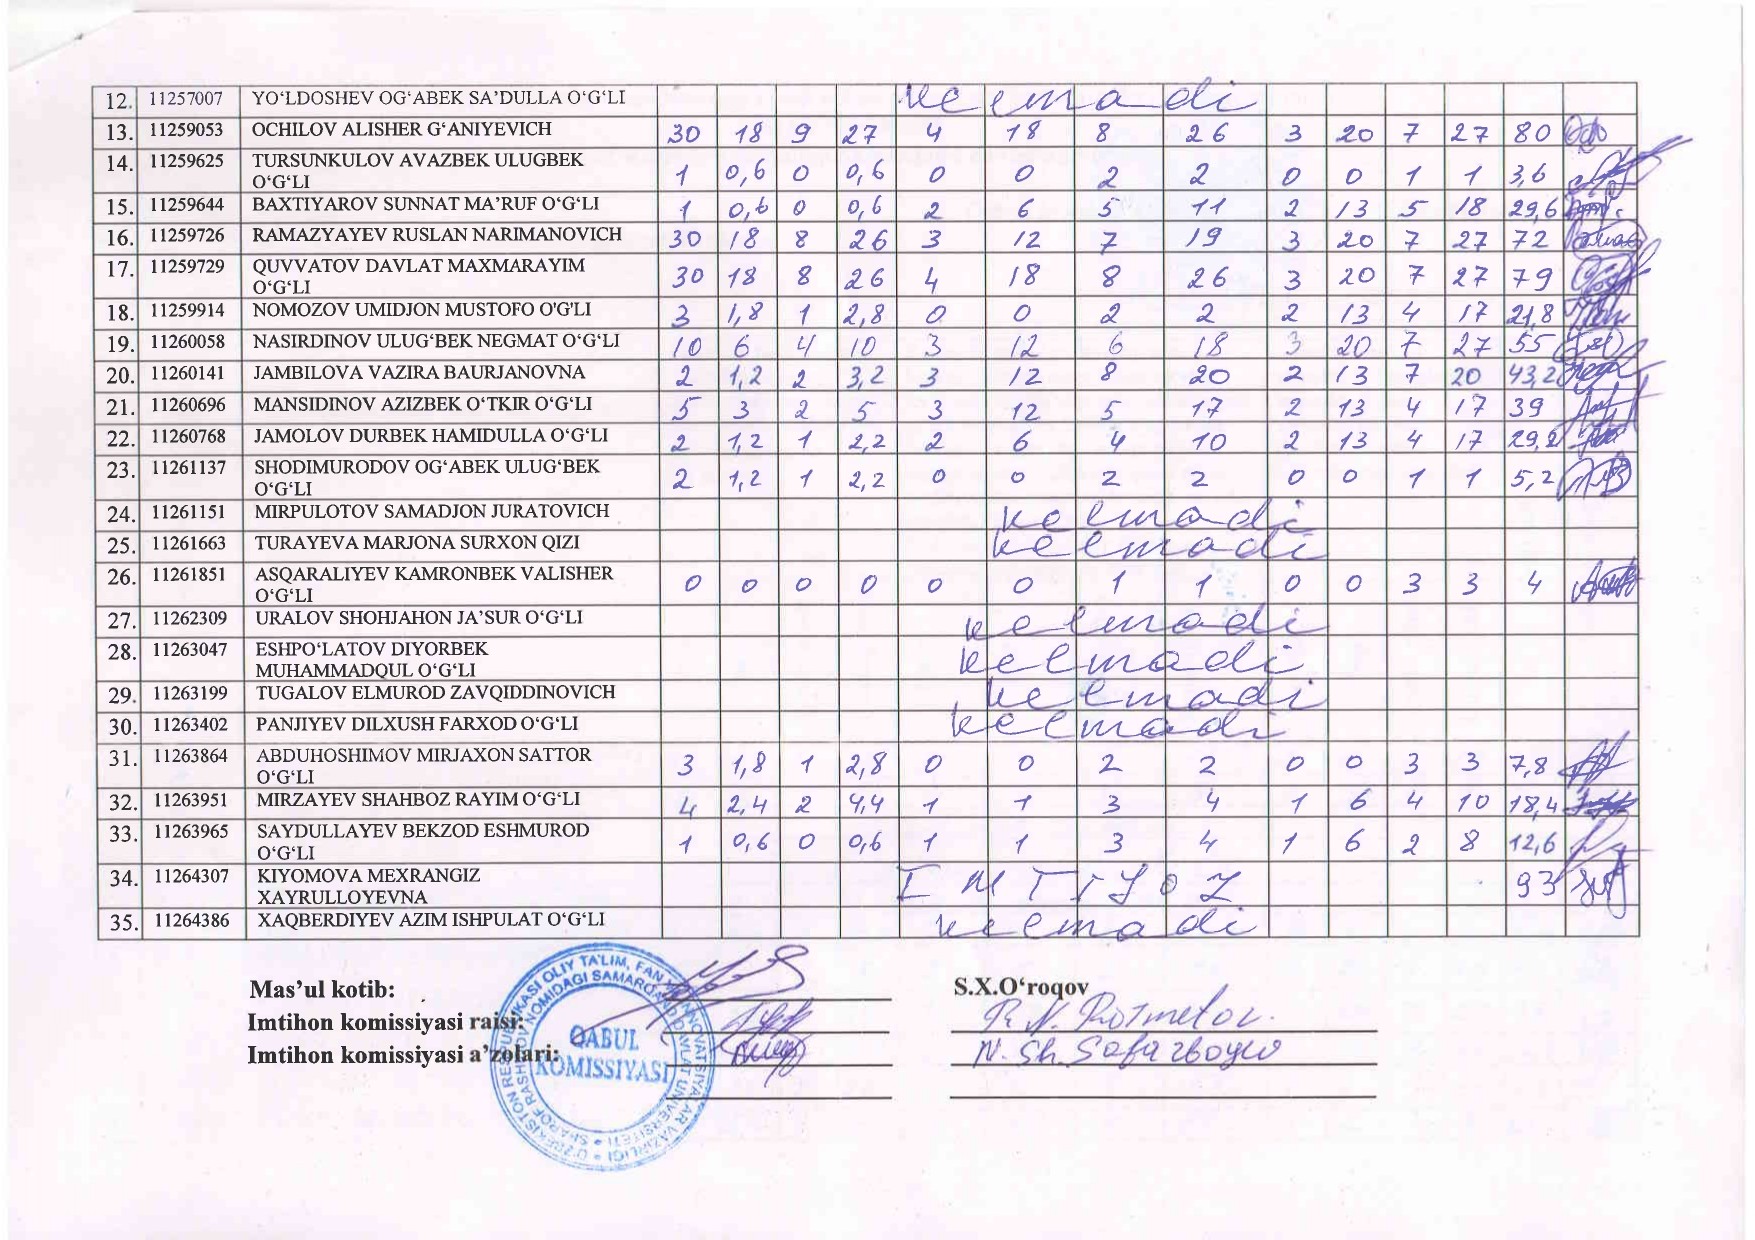 12. 11257007 YO‘LDOSHEV OG‘ABEK SA’DULLA O‘G‘LI kelmadi
13. 11259053 OCHILOV ALISHER G‘ANIYEVICH 30 18 9 27 4 18 8 26 3 20 7 27 80
14. 11259625 TURSUNKULOV AVAZBEK ULUGBEK
O‘G‘LI 1 0,6 0 0,6 0 0 2 2 0 0 1 1 3,6
15. 11259644 BAXTIYAROV SUNNAT MA’RUF O‘G‘LI 1 0,6 0 0,6 2 6 5 11 2 13 5 18 29,6
16. 11259726 RAMAZYAYEV RUSLAN NARIMANOVICH 30 18 8 26 3 12 7 19 3 20 7 27 72
17. 11259729 QUVVATOV DAVLAT MAXMARAYIM
O‘G‘LI 30 18 8 26 4 18 8 26 3 20 7 27 79
18. 11259914 NOMOZOV UMIDJON MUSTOFO O'G'LI 3 1,8 1 2,8 0 0 2 2 2 13 4 17 21,8
19. 11260058 NASIRDINOV ULUG‘BEK NEGMAT O‘G‘LI 10 6 4 10 3 12 6 18 3 20 7 27 55
20. 11260141 JAMBILOVA VAZIRA BAURJANOVNA 2 1,2 2 3,2 3 12 8 20 2 13 7 20 43,2
21. 11260696 MANSIDINOV AZIZBEK O‘TKIR O‘G‘LI 5 3 2 5 3 12 5 17 2 13 4 17 39
22. 11260768 JAMOLOV DURBEK HAMIDULLA O‘G‘LI 2 1,2 1 2,2 2 6 4 10 2 13 4 17 29,2
23. 11261137 SHODIMURODOV OG‘ABEK ULUG‘BEK
O‘G‘LI 2 1,2 1 2,2 0 0 2 2 0 0 1 1 5,2
24. 11261151 MIRPULOTOV SAMADJON JURATOVICH kelmadi
25. 11261663 TURAYEVA MARJONA SURXON QIZI kelmadi
26. 11261851 ASQARALIYEV KAMRONBEK VALISHER
O‘G‘LI 0 0 0 0 0 0 1 1 0 0 3 3 4
27. 11262309 URALOV SHOHJAHON JA’SUR O‘G‘LI kelmadi
28. 11263047 ESHPO‘LATOV DIYORBEK
MUHAMMADQUL O‘G‘LI kelmadi
29. 11263199 TUGALOV ELMUROD ZAVQIDDINOVICH kelmadi
30. 11263402 PANJIYEV DILXUSH FARXOD O‘G‘LI kelmadi
31. 11263864 ABDUHOSHIMOV MIRJAXON SATTOR
O‘G‘LI 3 1,8 1 2,8 0 0 2 2 0 0 3 3 7,8
32. 11263951 MIRZAYEV SHAHBOZ RAYIM O‘G‘LI 4 2,4 2 4,4 1 1 3 4 1 6 4 10 18,4
33. 11263965 SAYDULLAYEV BEKZOD ESHMUROD
O‘G‘LI 1 0,6 0 0,6 1 1 3 4 1 6 2 8 12,6
34. 11264307 KIYOMOVA MEXRANGIZ
XAYRULLOYEVNA IMTIYOZ 93
35. 11264386 XAQBERDIYEV AZIM ISHPULAT O‘G‘LI kelmadi
Mas’ul kotib: S.X.O‘roqov
Imtihon komissiyasi raisi: R.N.
Imtihon komissiyasi a’zolari: N.Sh.
QABUL
KOMISSIYASI